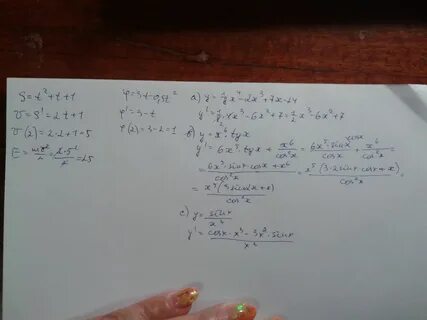 S=t²+t+1
v=S'=2t+1
v(2)=2·2+1=5
E=mv²/2=2·5²/2=25
φ=3t-0,5t²
φ'=3-t
φ(2)=3-2=1
a) y=1/8x⁴-2x³+7x-14
y'=1/8·4x³-6x²+7=1/2x³-6x²+7
б) y=x⁶·tgx
y'=6x⁵·tgx+x⁶/cos²x=6x⁵·sinx/cosx+x⁶/cos²x=
=6x⁵·sinx·cosx+x⁶/cos²x=x⁵(3·2sinx·cosx+x)/cos²x=
=x⁵(3sin2x+x)/cos²x
c) y=sinx/x³
y'=cosx·x³-3x²·sinx/x⁶